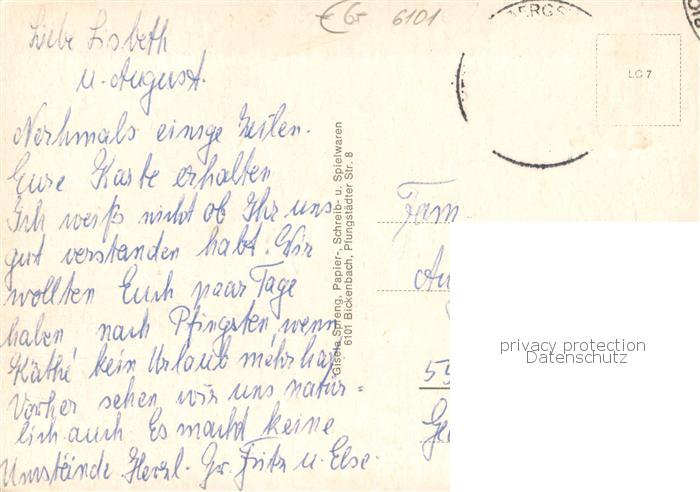 € 6,- 6101
BERGS
LC 7
Liebe Lisbeth
u. August.
Nochmals einige Zeilen.
Eure Karte erhalten
Ich weiß nicht ob Ihr uns
gut verstanden habt. Wir
wollten Euch paar Tage
haben nach Pfingsten, wenn
Käthe kein Urlaub mehr hat
Vorher sehen wir uns natür=
lich auch Es macht keine
Umstände. Herzl. Gr. Fritz u. Else.
Gisela Spreng, Papier-, Schreib- u. Spielwaren
6101 Bickenbach, Pfungstädter Str. 8
Fam
Au
55
Ge
privacy protection
Datenschutz